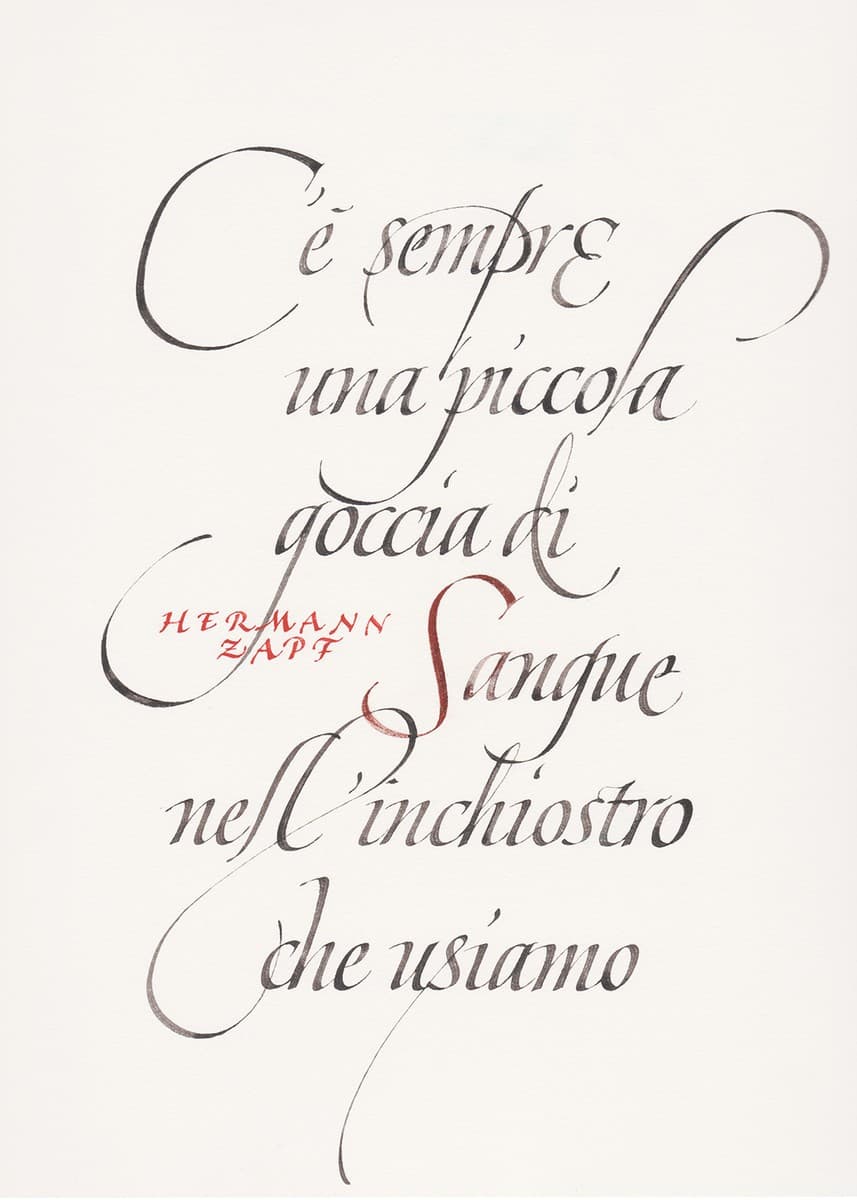 C'è sempre
una piccola
goccia di
Sangue
HERMANN
ZAPF
nell'inchiostro
che usiamo